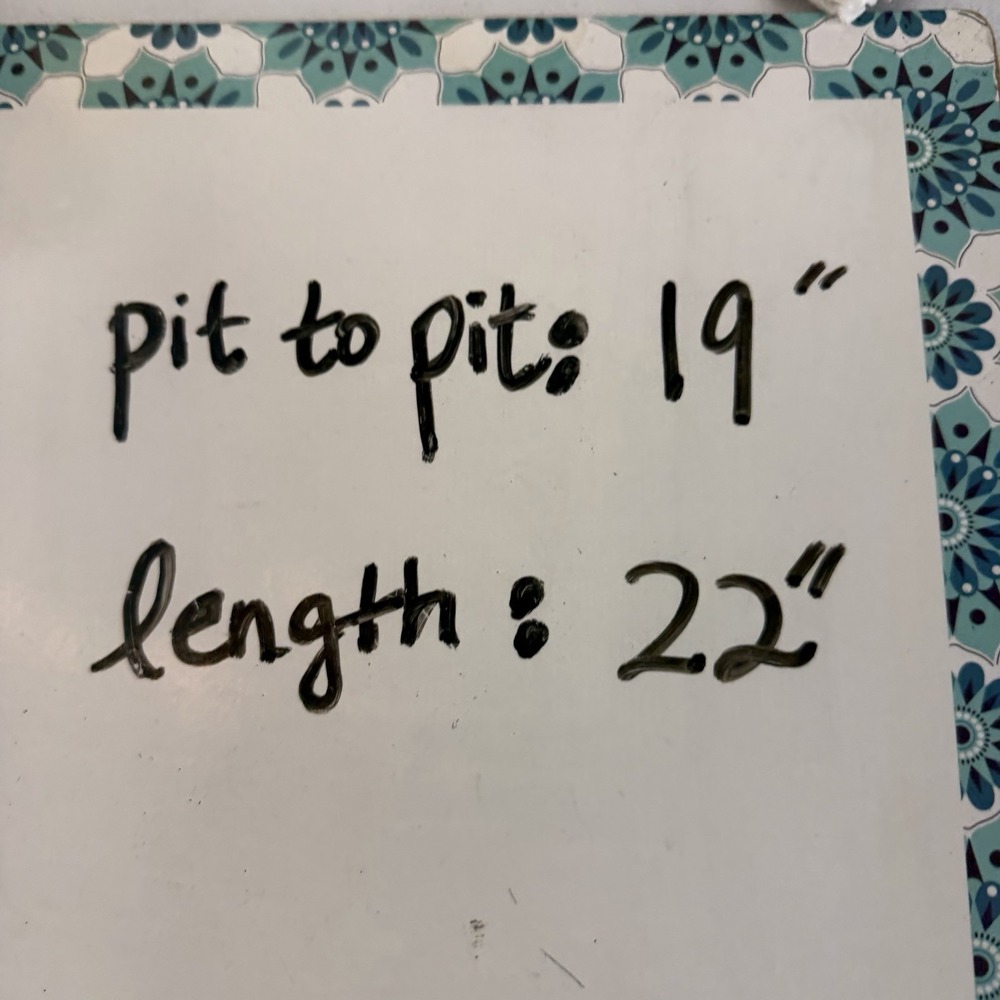 pit to pit: 19"
length: 22"